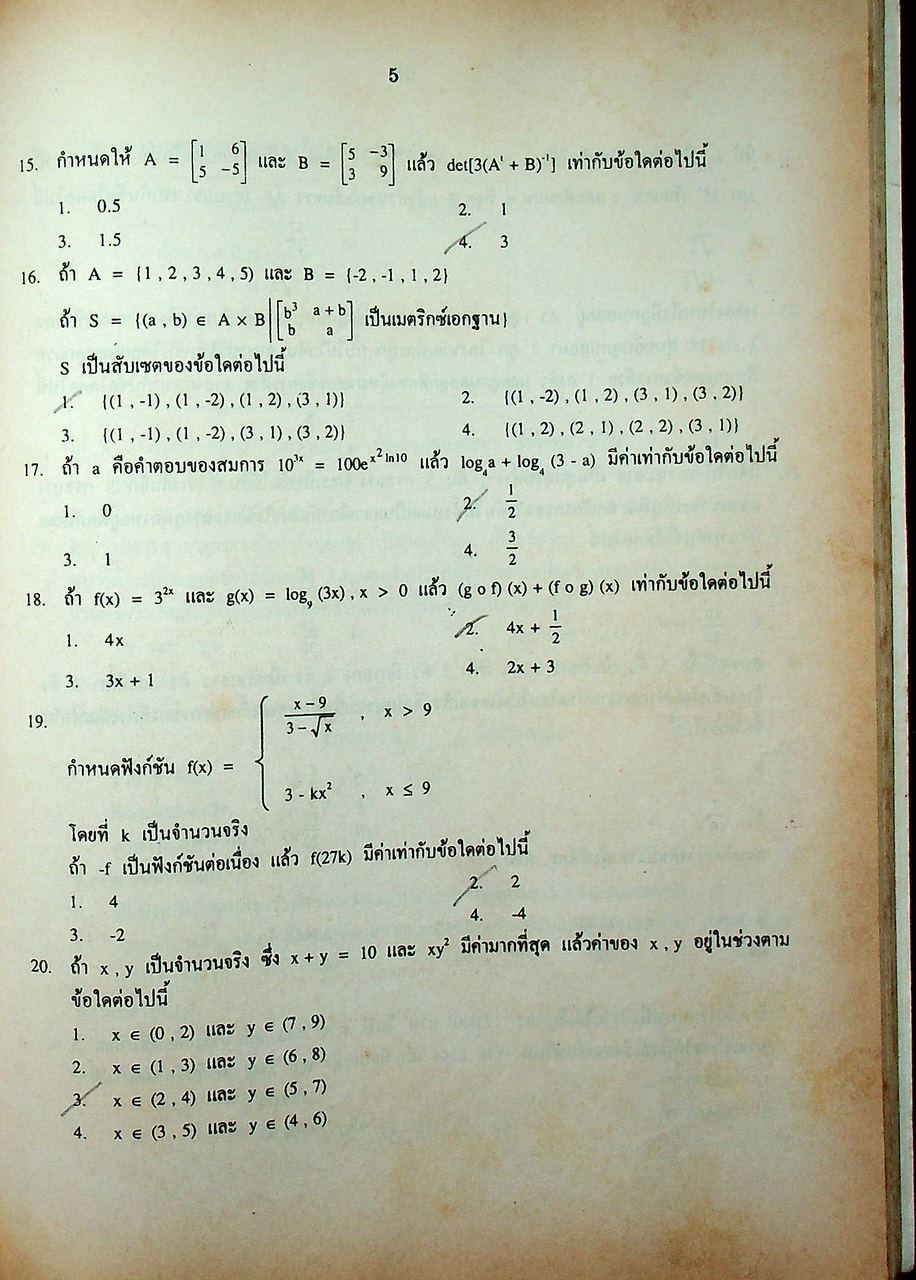 5
15. กำหนดให้ A = [1 6; 5 -5] และ B = [5 -3; 3 9] แล้ว det[3(Aᵗ + B)⁻¹] เท่ากับข้อใดต่อไปนี้
1. 0.5 2. 1
3. 1.5 4. 3
16. ถ้า A = {1 , 2 , 3 , 4 , 5) และ B = {-2 , -1 , 1 , 2}
ถ้า S = {(a , b) ∈ A × B | [b³ a + b; b a] เป็นเมตริกซ์เอกฐาน}
S เป็นสับเซตของข้อใดต่อไปนี้
1. {(1 , -1) , (1 , -2) , (1 , 2) , (3 , 1)} 2. {(1 , -2) , (1 , 2) , (3 , 1) , (3 , 2)}
3. {(1 , -1) , (1 , -2) , (3 , 1) , (3 , 2)} 4. {(1 , 2) , (2 , 1) , (2 , 2) , (3 , 1)}
17. ถ้า a คือคำตอบของสมการ 10³ˣ = 100e^(x² ln10) แล้ว log₄a + log₄ (3 - a) มีค่าเท่ากับข้อใดต่อไปนี้
1. 0 2. 1/2
3. 1 4. 3/2
18. ถ้า f(x) = 3²ˣ และ g(x) = log₉ (3x) , x > 0 แล้ว (g o f) (x) + (f o g) (x) เท่ากับข้อใดต่อไปนี้
1. 4x 2. 4x + 1/2
3. 3x + 1 4. 2x + 3
19.
กำหนดฟังก์ชัน f(x) = { (x - 9)/(3 - √x) , x > 9
3 - kx² , x ≤ 9
โดยที่ k เป็นจำนวนจริง
ถ้า -f เป็นฟังก์ชันต่อเนื่อง แล้ว f(27k) มีค่าเท่ากับข้อใดต่อไปนี้
1. 4 2. 2
3. -2 4. -4
20. ถ้า x , y เป็นจำนวนจริง ซึ่ง x + y = 10 และ xy² มีค่ามากที่สุด แล้วค่าของ x , y อยู่ในช่วงตาม
ข้อใดต่อไปนี้
1. x ∈ (0 , 2) และ y ∈ (7 , 9)
2. x ∈ (1 , 3) และ y ∈ (6 , 8)
3. x ∈ (2 , 4) และ y ∈ (5 , 7)
4. x ∈ (3 , 5) และ y ∈ (4 , 6)